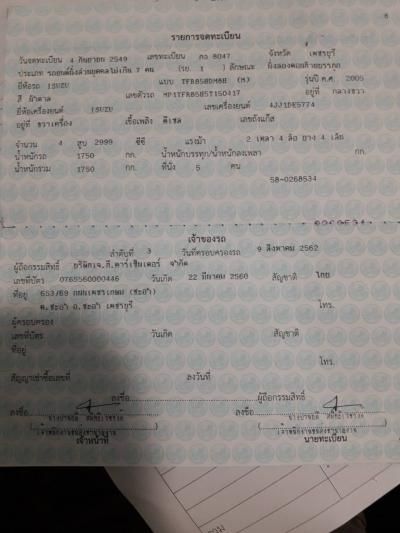 รายการจดทะเบียน
วันจดทะเบียน 4 กันยายน 2549 เลขทะเบียน กง 8047 จังหวัด เพชรบุรี
ประเภท รถยนต์นั่งส่วนบุคคลไม่เกิน 7 คน (รย. 1 ) ลักษณะ นั่งสองตอนท้ายบรรทุก
ยี่ห้อรถ ISUZU แบบ รุ่นปี ค.ศ. 2005
สี น้ำตาล เลขตัวรถ MP1TFR85H5T150417 อยู่ที่ กลางขวา
ยี่ห้อเครื่องยนต์ ISUZU เลขเครื่องยนต์ 4JJ1DE5774
อยู่ที่ ขวาเครื่อง เชื้อเพลิง ดีเซล เลขถังแก๊ส
จำนวน 4 สูบ 2999 ซีซี แรงม้า 2 เพลา 4 ล้อ ยาง 4 เส้น
น้ำหนักรถ 1750 กก. น้ำหนักบรรทุก/น้ำหนักลงเพลา กก.
น้ำหนักรวม 1750 กก. ที่นั่ง 5 คน
58-0268534
เจ้าของรถ
ลำดับที่ 3 วันที่ครอบครองรถ 9 สิงหาคม 2562
ผู้ถือกรรมสิทธิ์ จำกัด
เลขที่บัตร 0765560000446 วันเกิด 22 มีนาคม 2560 สัญชาติ ไทย
ที่อยู่ 653/69 ถนนเพชรเกษม (ชะอำ)
ต.ชะอำ อ.ชะอำ เพชรบุรี โทร.
ผู้ครอบครอง
เลขที่บัตร วันเกิด สัญชาติ
ที่อยู่
โทร.
สัญญาเช่าซื้อเลขที่ ลงวันที่
ลงชื่อ ผู้ถือกรรมสิทธิ์
ลงชื่อ ลงชื่อ
เจ้าหน้าที่ นายทะเบียน